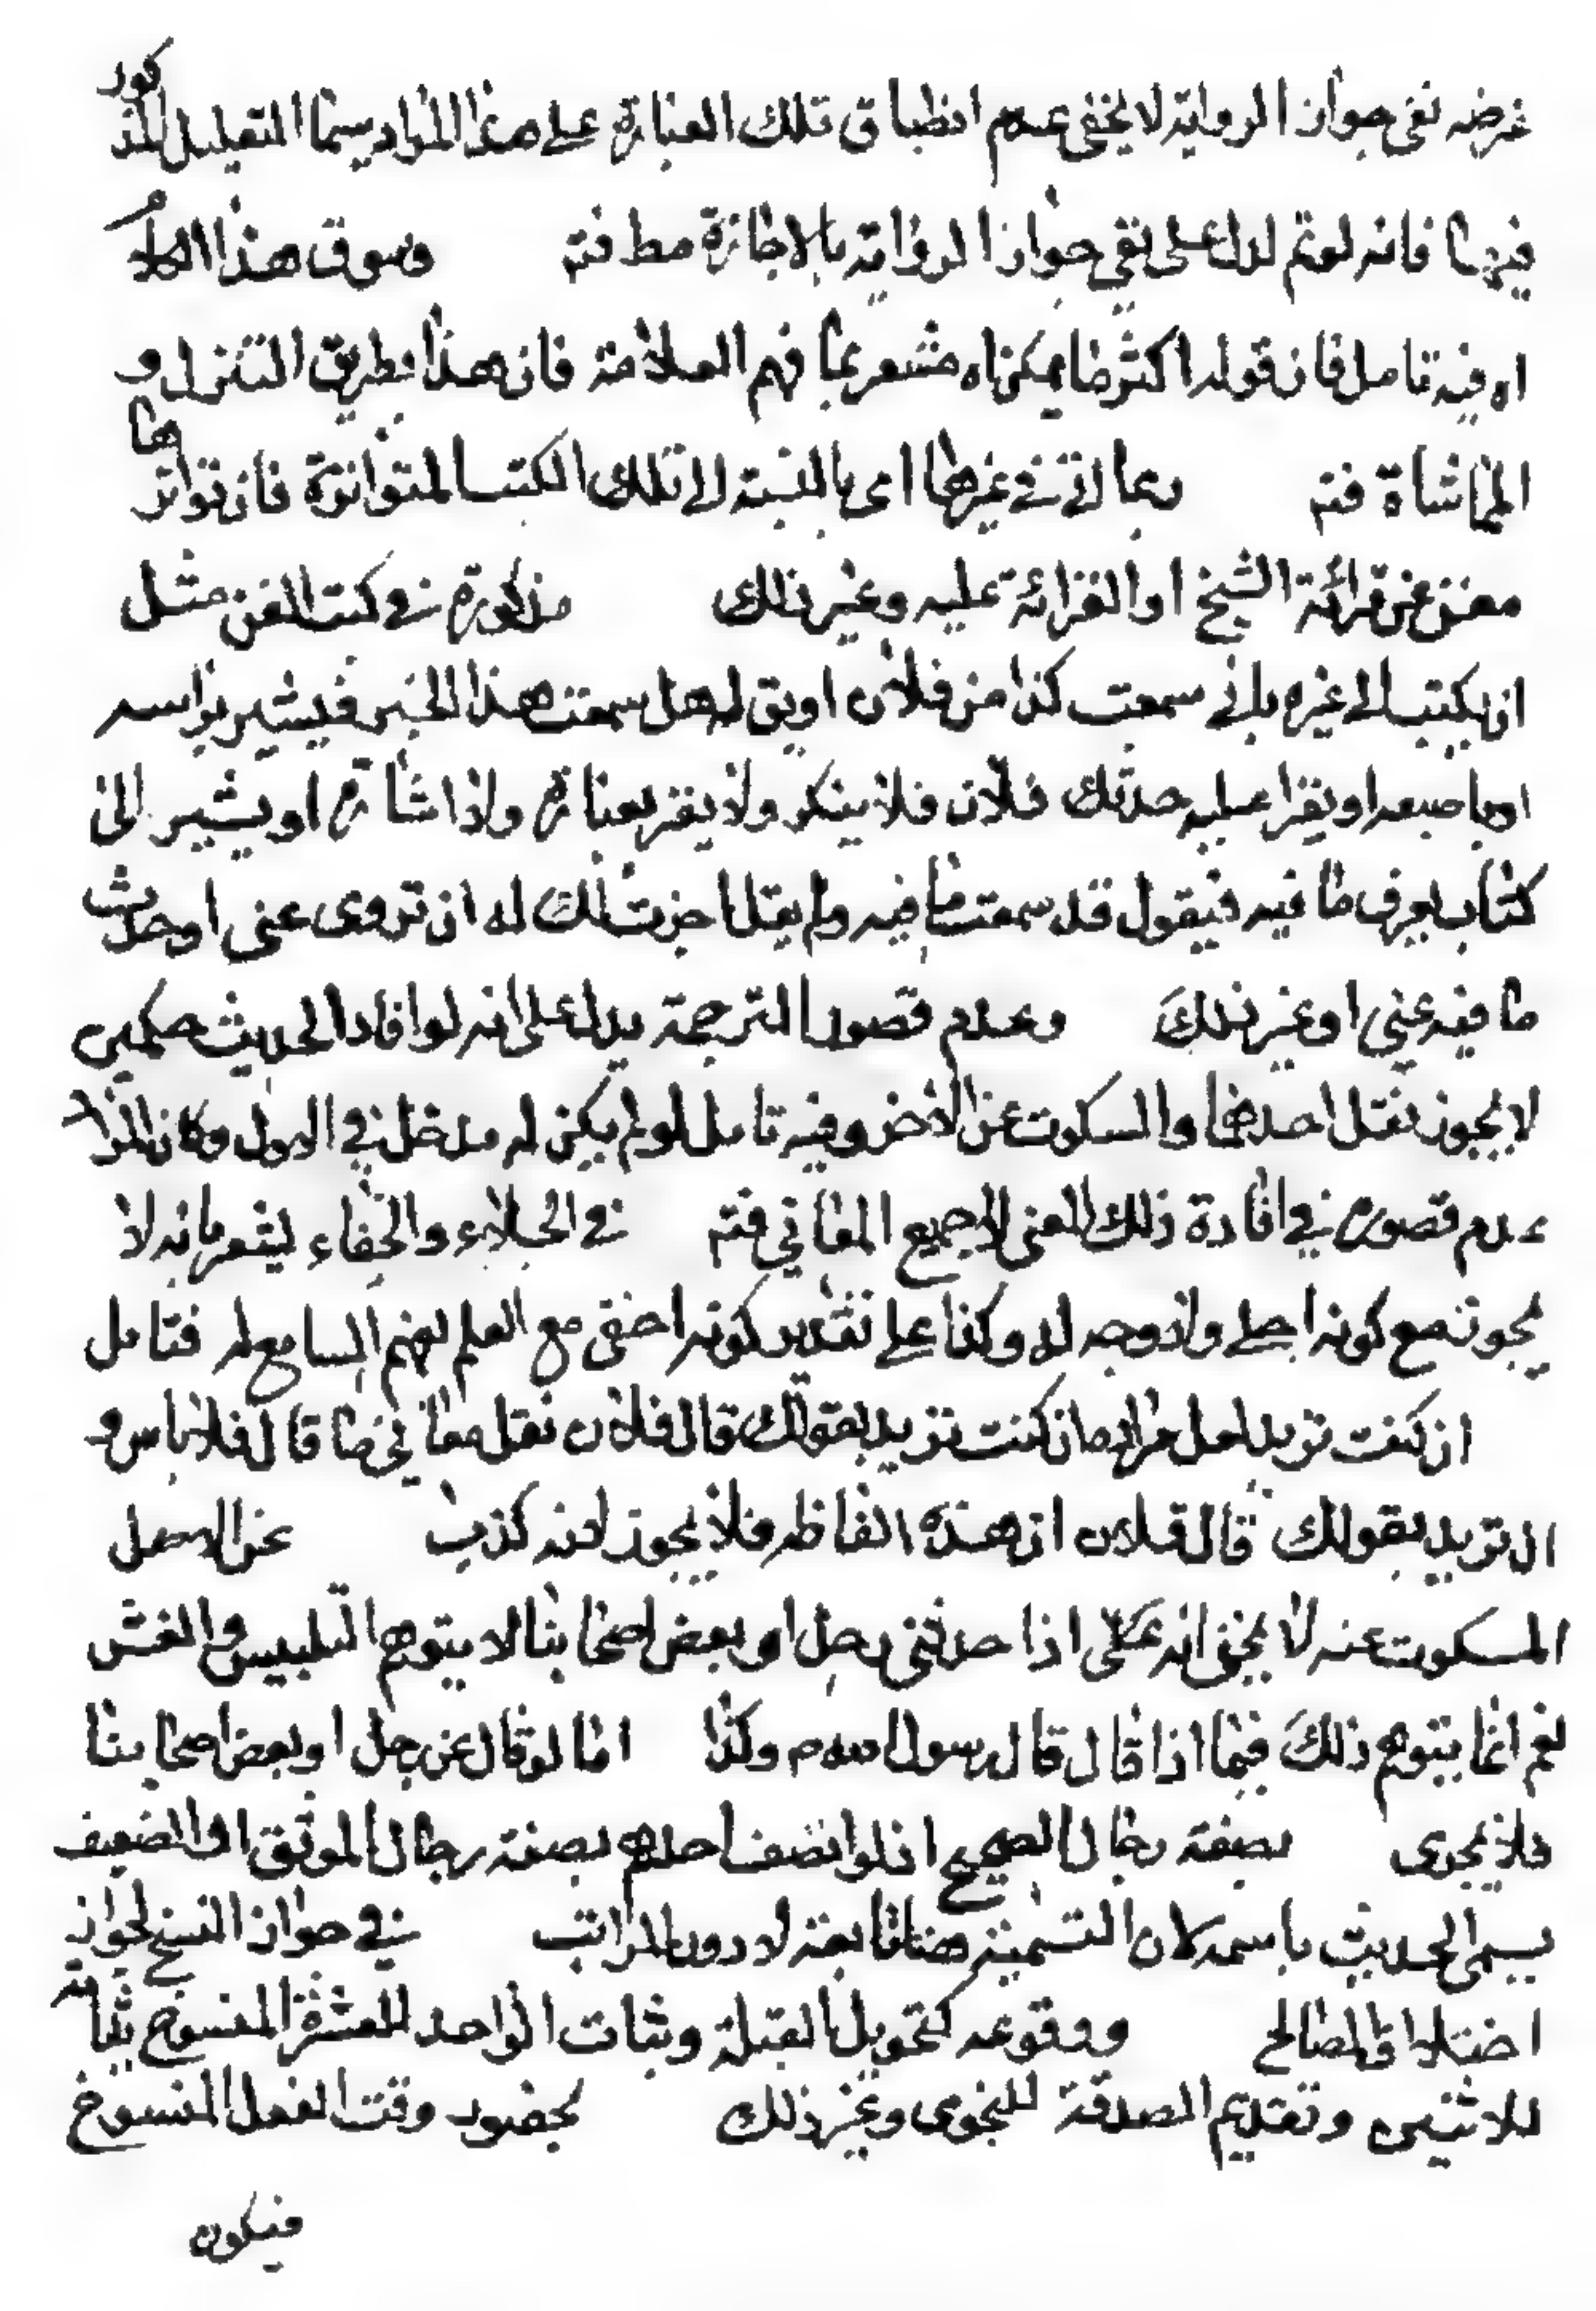 غرضه نفى جواز الرواية لا يخفى عدم انطباق تلك العبارة على هذا المراد سيما التعليل المذكور
فيها فانه لو تم لدل على نفى جواز الرواية بالاجازة مط فتم وسوق هذا الكلام
اه فيه تامل فان قوله اكثر ما يمكن اه مشعر بما فهم العلامة فان هذا بطريق التنزل و
المماشاة فتم ربما اتى في غيرها اى بالنسبة الى تلك الكتب المتواترة فان تواترها
مغن عن قرائة الشيخ او القرائة عليه وغير ذلك مذكورة في كتب الفن مثل
ان يكتب الى غيره بانى سمعت كذا من فلان او يق له هل سمعت هذا الخبر فيشير براسه
او باصبعه او يقرا عليه حدثك فلان فلا ينكر ولا يقر بعبارة ولا اشارة او يشير الى
كتاب يعرف ما فيه فيقول قد سمعت ما فيه ولم يقل اجزت لك له ان تروى عنى او حدث
ما فيه عنى او غير ذلك وعدم قصور الترجمة يدل على انه لو افاد الحديث حكمين
لا يجوز نقل احدهما والسكوت عن الاخر وفيه تامل لو لم يكن له مدخل في الاول وكان المراد
عدم قصوره في افادة ذلك المعنى لا جميع المعانى فتم في الجلاء والخفاء يشعر بانه لا
يجوز مع كونه اجلى ولا وجه له وكذا على تقدير كونه اخفى مع العلم بفهم السامع له فتامل
ان كنت تريد لعل مراده ان كنت تريد بقولك قال فلان نقل معانى ما قال فلا باس و
ان تريد بقولك قال فلان ان هذه الفاظه فلا يجوز لانه كذب عن الاصل
المسكوت عنه لا يخفى انه على اذا حدثنى رجل او بعض اصحابنا لا يتوهم التلبيس والغش
نعم انما يتوهم ذلك فيما اذا قال قال رسول الله ص وكذا اما لو قال عن رجل او بعض اصحابنا
فلا يجرى بصفة رجال الصحيح اذ لو اتصف احدهم بصفة رجال الموثق او الضعيف
يسمى الحديث باسمه لان التسمية هنا تابعة لادون المراتب في جواز النسخ لجواز
اختلاف المصالح ووقوعه كتحويل القبلة وثبات الواحد للعشرة المنسوخ بثباته
للاثنين وتقديم الصدقة للنجوى وغير ذلك بحضور وقت الفعل المنسوخ
فيكون